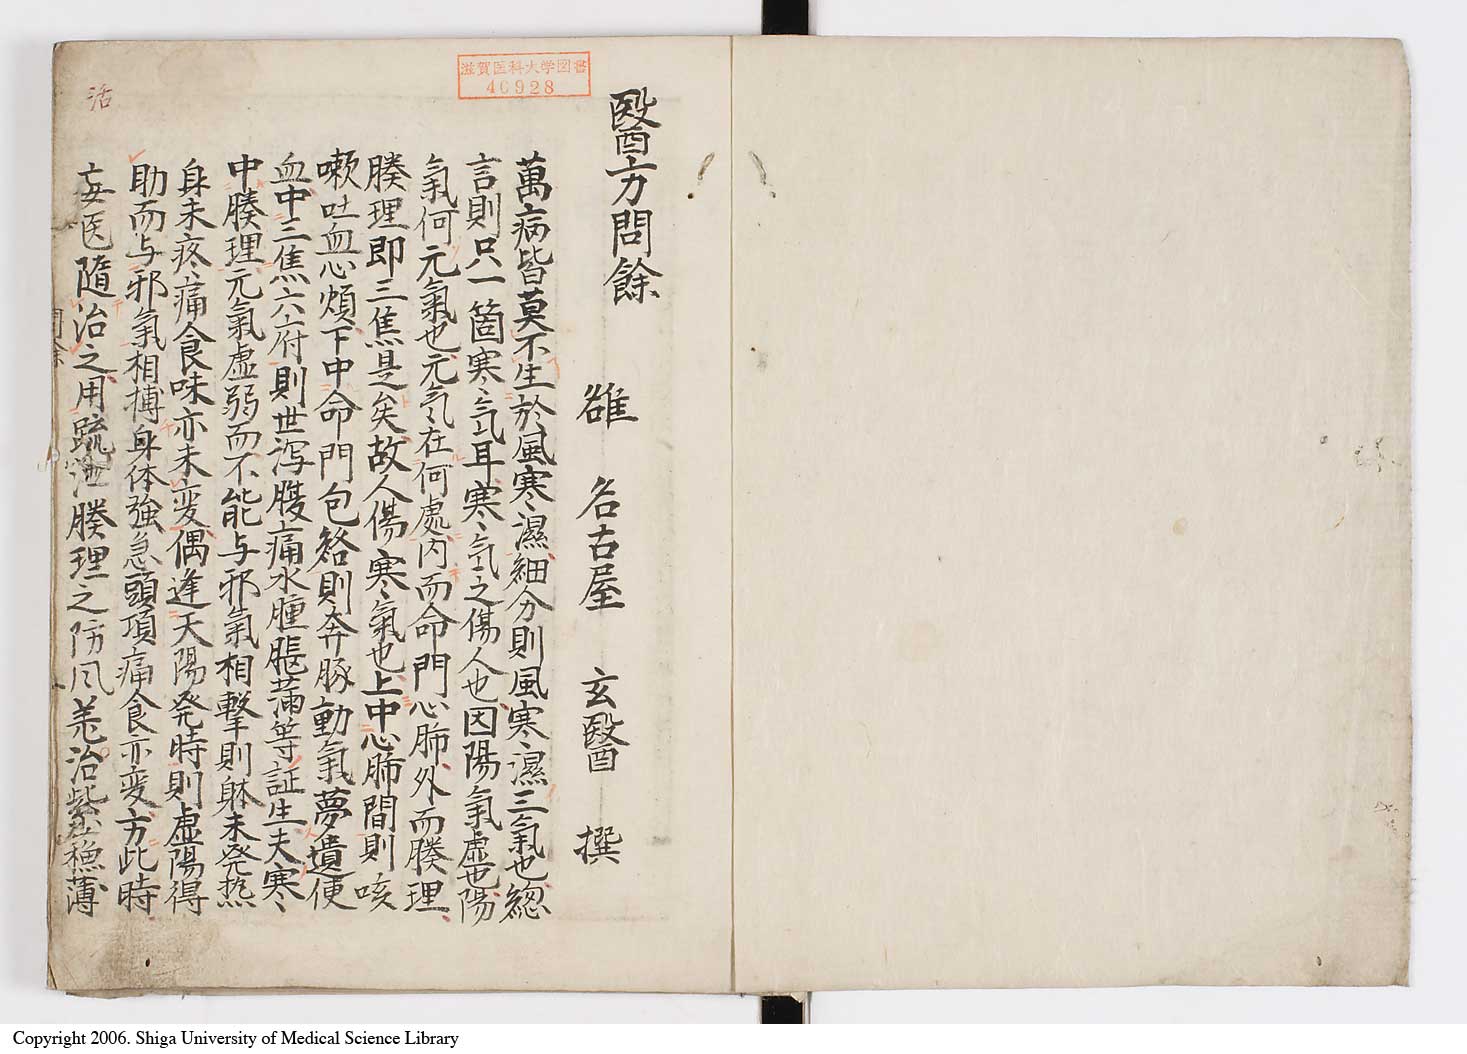 滋賀医科大学図書
40928
活
醫方問餘
雒 名古屋 玄醫 撰
萬病皆莫不生於風寒濕細分則風寒濕三氣也總
言則只一箇寒气耳寒气之傷人也因陽氣虛也陽
氣何元氣也元气在何處内而命門心肺外而腠理
腠理即三焦是矣故人傷寒氣也上中心肺間則咳
嗽吐血心煩下中命門包絡則奔豚動氣夢遺便
血中三焦六府則世泻腹痛水腫脹滿等証生夫寒
中腠理元氣虛弱而不能与邪氣相擊則躰未発热
身未疼痛食味亦未变偶逢天陽発時則虛陽得
助而与邪氣相搏身体強急頭項痛食亦变方此時
妄医隨治之用疏泄腠理之防风羌活紫蘇薄
Copyright 2006. Shiga University of Medical Science Library